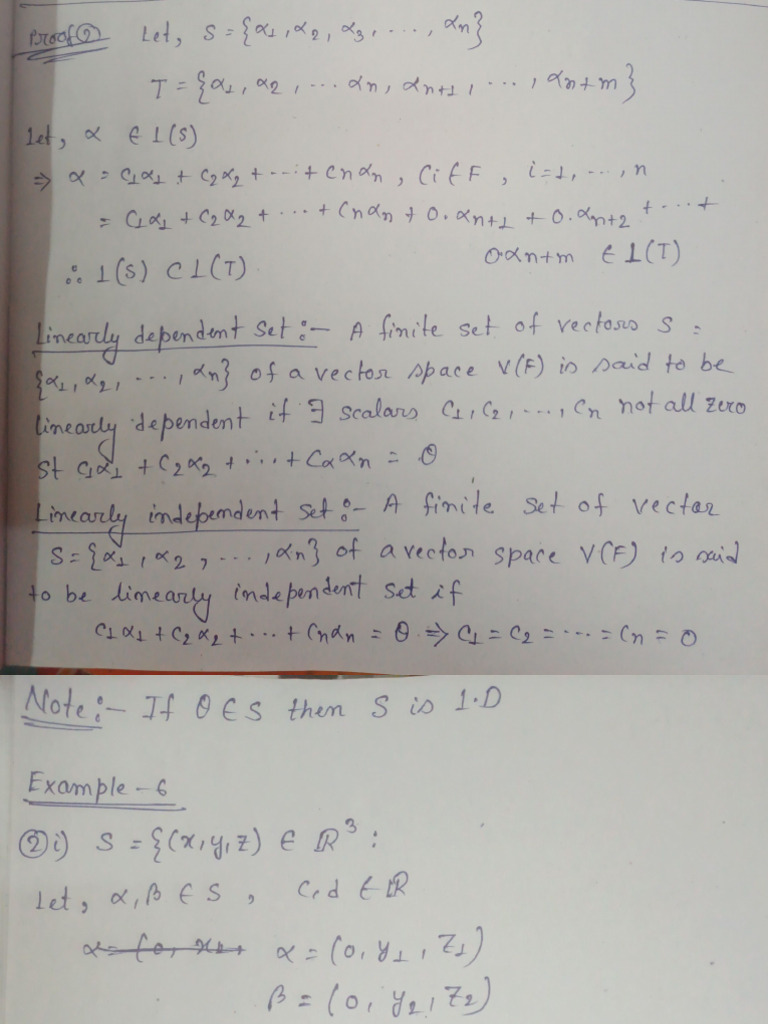 Proof ② Let, S = {α1, α2, α3, ..., αn}
T = {α1, α2, ... αn, αn+1, ..., αn+m}
Let, α ∈ L(S)
⇒ α = c1α1 + c2α2 + ... + cnαn, ci ∈ F, i = 1, ..., n
= c1α1 + c2α2 + ... + cnαn + 0.αn+1 + 0.αn+2 + ... +
0.αn+m ∈ L(T)
∴ L(S) ⊂ L(T)
Linearly dependent set :- A finite set of vectors S =
{α1, α2, ..., αn} of a vector space V(F) is said to be
linearly dependent if ∃ scalars c1, c2, ..., cn not all zero
st c1α1 + c2α2 + ... + cααn = θ
Linearly independent set :- A finite set of vector
S = {α1, α2, ..., αn} of a vector space V(F) is said
to be linearly independent set if
c1α1 + c2α2 + ... + cnαn = θ ⇒ c1 = c2 = ... = cn = 0
Note :- If θ ∈ S then S is L.D
Example - 6
② i) S = {(x, y, z) ∈ ℝ³ :
Let, α, β ∈ S, c, d ∈ ℝ
α = (0, y1, z1)
β = (0, y2, z2)